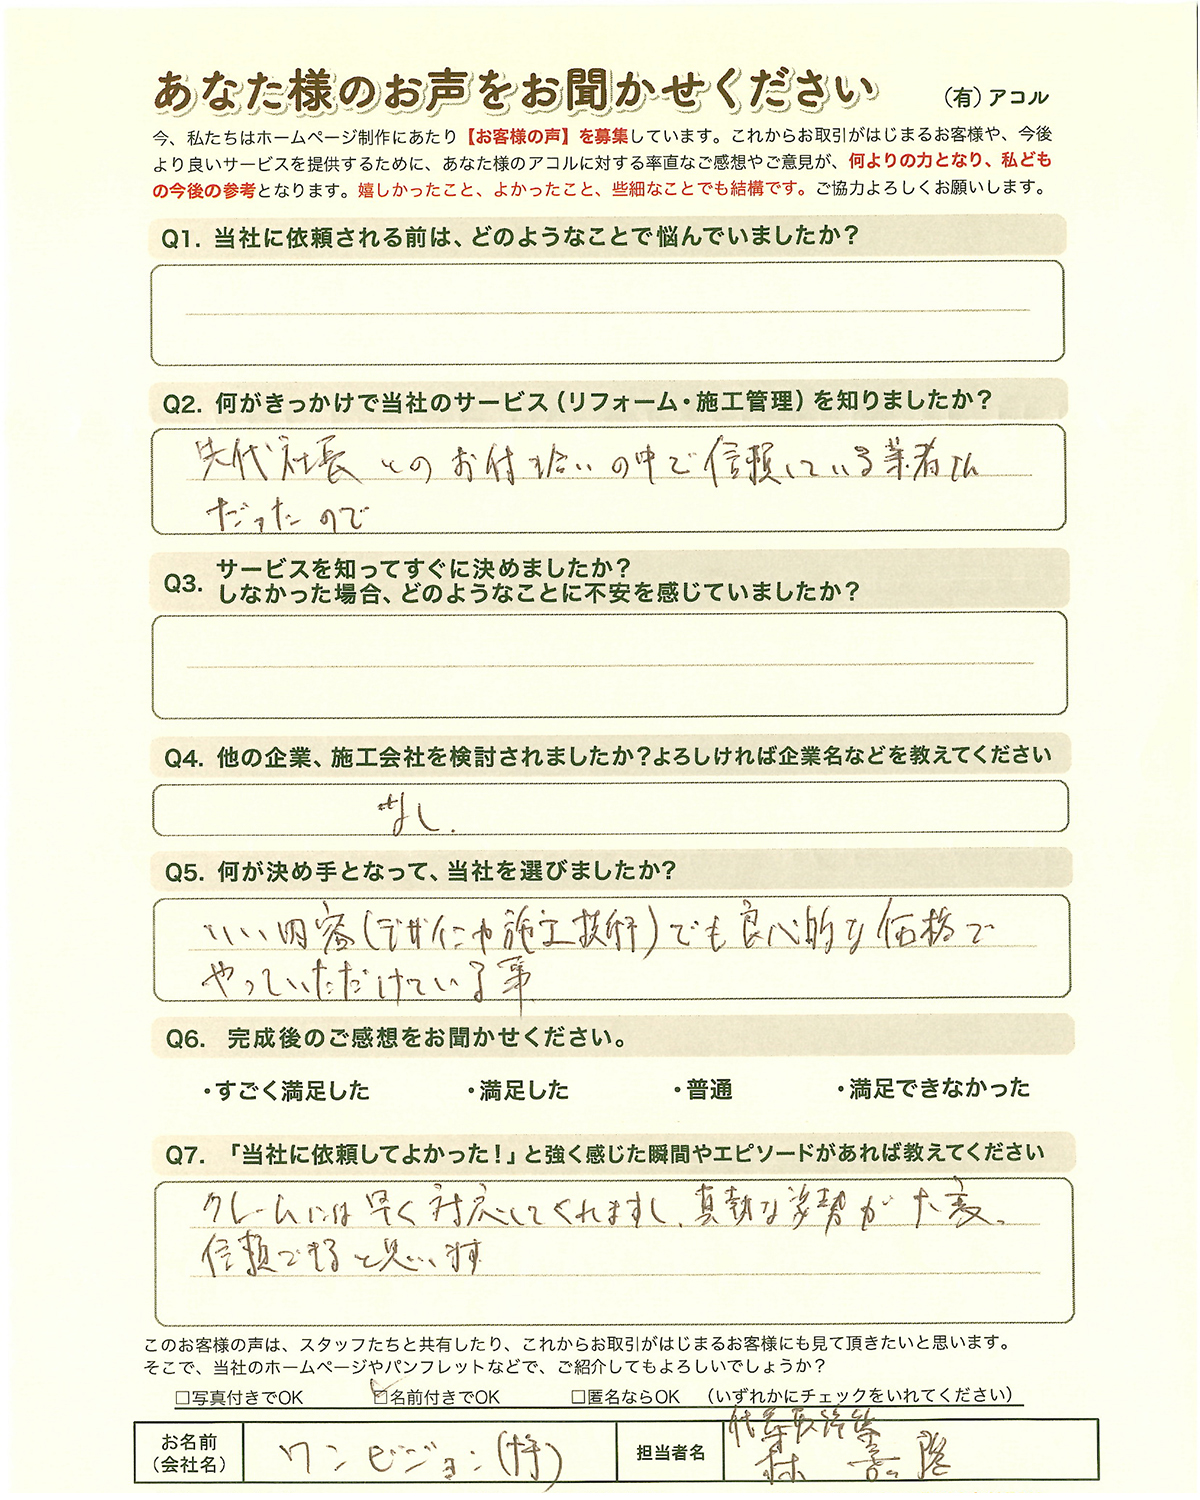 あなた様のお声をお聞かせください (有)アコル
今、私たちはホームページ制作にあたり【お客様の声】を募集しています。これからお取引がはじまるお客様や、今後
より良いサービスを提供するために、あなた様のアコルに対する率直なご感想やご意見が、何よりの力となり、私ども
の今後の参考となります。嬉しかったこと、よかったこと、些細なことでも結構です。ご協力よろしくお願いします。
Q1. 当社に依頼される前は、どのようなことで悩んでいましたか?
Q2. 何がきっかけで当社のサービス(リフォーム・施工管理)を知りましたか?
先代社長とのお付き合いの中で信頼している業者さん
だったので
Q3. サービスを知ってすぐに決めましたか?
しなかった場合、どのようなことに不安を感じていましたか?
Q4. 他の企業、施工会社を検討されましたか?よろしければ企業名などを教えてください
なし.
Q5. 何が決め手となって、当社を選びましたか?
いい内容(デザインや施工技術)でも良心的な価格で
やっていただけている事
Q6. 完成後のご感想をお聞かせください。
・すごく満足した ・満足した ・普通 ・満足できなかった
Q7. 「当社に依頼してよかった!」と強く感じた瞬間やエピソードがあれば教えてください
クレームには早く対応してくれますし、真執な姿勢が大変、
信頼できると思います
このお客様の声は、スタッフたちと共有したり、これからお取引がはじまるお客様にも見て頂きたいと思います。
そこで、当社のホームページやパンフレットなどで、ご紹介してもよろしいでしょうか?
□写真付きでOK ☑名前付きでOK □匿名ならOK (いずれかにチェックをいれてください)
お名前
(会社名) ワンビジョン(株) 担当者名 代表取締役
林 善隆